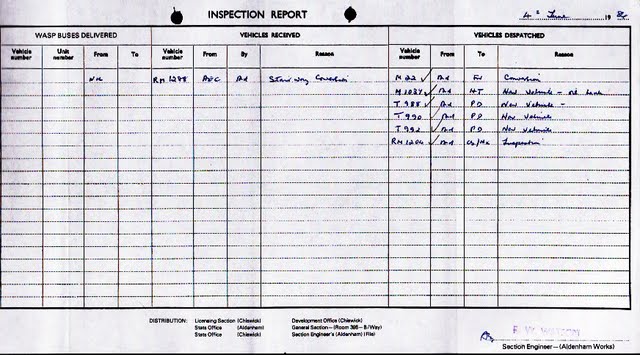 INSPECTION REPORT
4th June 1984
WASP BUSES DELIVERED VEHICLES RECEIVED VEHICLES DISPATCHED
Vehicle number Unit number From To Vehicle number From By Reason Vehicle number By To Reason
RM 1278 AEC Rd M 22 Rd Conversion
M 1037 Rd HT New Vehicle -
T 988 Rd PD New Vehicle -
T 990 Rd PD New Vehicle
T 992 Rd PD New Vehicle
RM 1204 Rd Inspection
DISTRIBUTION: Licensing Section (Chiswick) Development Office (Chiswick)
Stats Office (Aldenham) General Section—(Room 395 – B/Way)
Stats Office (Chiswick) Section Engineer's (Aldenham) (File)
R. W. WATSON
Section Engineer—(Aldenham Works)